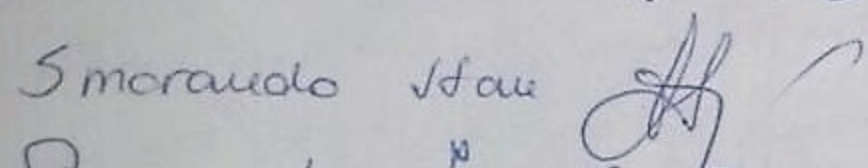 Smaranda Stan